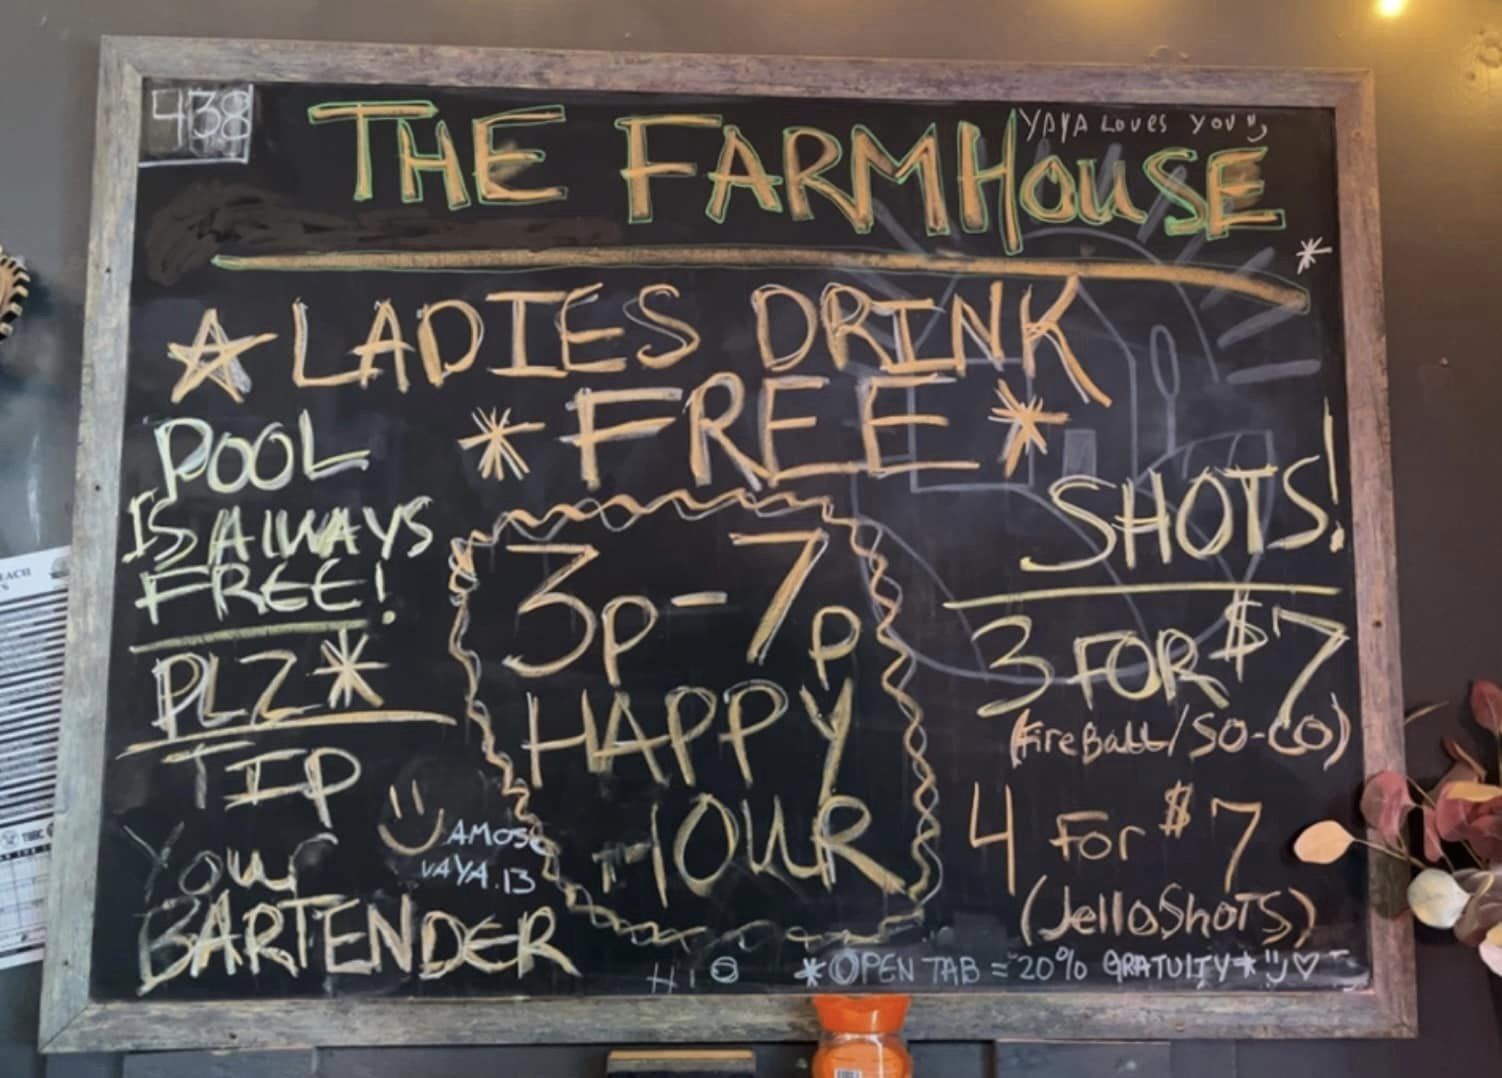 438
YAYA LOVES YOU
THE FARMHOUSE
LADIES DRINK
FREE
POOL
IS ALWAYS
FREE!
PLZ*
TIP
Your
BARTENDER
AMOS
YAYA.13
3p-7p
HAPPY
HOUR
SHOTS!
3 FOR $7
(FireBall/SO-CO)
4 For $7
(JelloShoTS)
HI
*OPEN TAB = 20% GRATUITY*
EACH